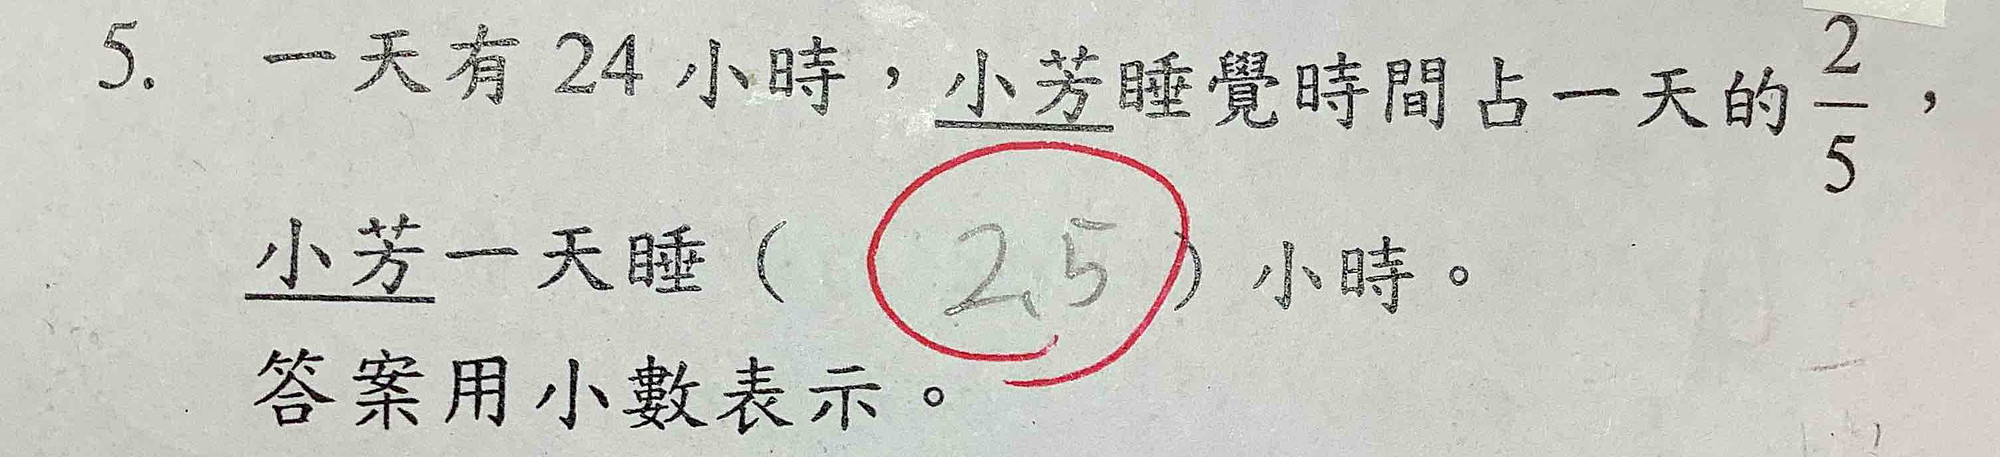 5. 一天有 24 小時，小芳睡覺時間占一天的 2/5，
小芳一天睡（ 2.5 ）小時。
答案用小數表示。